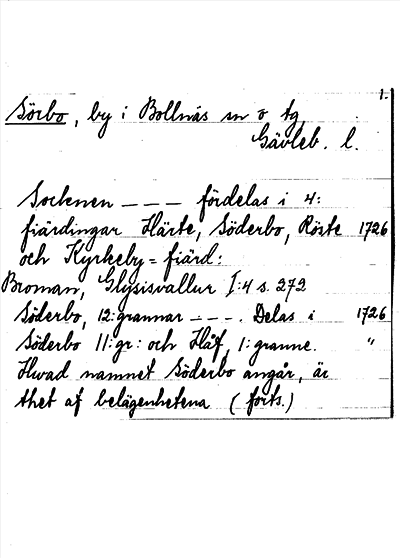 1.
Sörbo, by i Bollnäs sn o tg,
Gävleb. l.
Socknen – – – fördelas i 4:
fiärdingar Härte, Söderbo, Röste 1726
och Kyrkeby=fiärd:
Broman, Glysisvallur I:4 s. 272
Söderbo, 12:grannar – – –. Delas i 1726
Söderbo 11:gr: och Håf, 1:granne. "
Hwad namnet Söderbo angår, är
thet af belägenhetena (forts.)